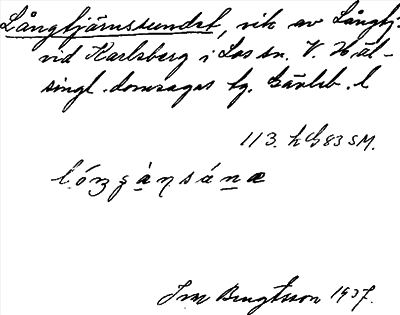 Långtjärnssundet, vik av Långtj.
vid Karlsberg i Los sn. V. Häl-
singl. domsagas tg. Gävleb. l
113. h G 83 SM.
Ivar Bengtsson 1937.